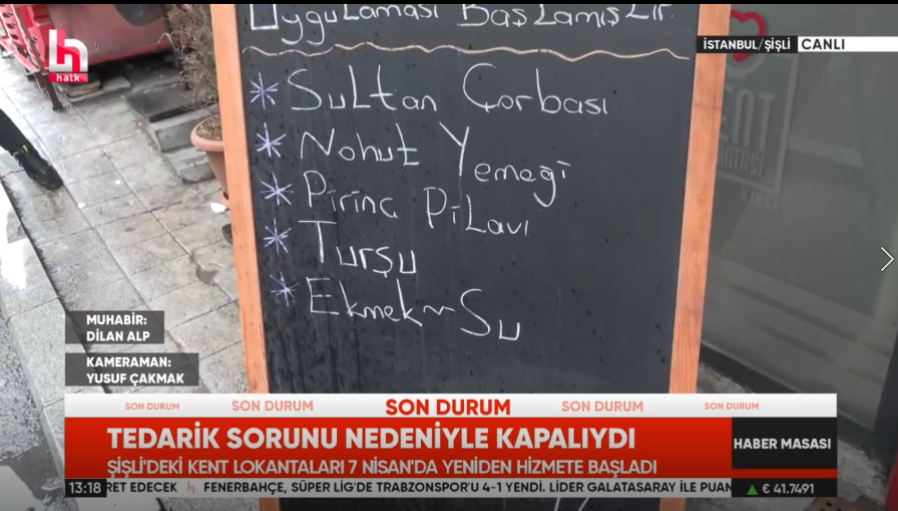 Uygulaması Başlamıştır.
halk
İSTANBUL/ŞİŞLİ CANLI
* Sultan Çorbası
* Nohut Yemeği
* Pirinç Pilavı
* Turşu
* Ekmek~Su
MUHABİR:
DİLAN ALP
KAMERAMAN:
YUSUF ÇAKMAK
SON DURUM SON DURUM SON DURUM SON DURUM SON DURUM
TEDARİK SORUNU NEDENİYLE KAPALIYDI
HABER MASASI
ŞİŞLİ'DEKİ KENT LOKANTALARI 7 NİSAN'DA YENİDEN HİZMETE BAŞLADI
13:18 RET EDECEK h FENERBAHÇE, SÜPER LİG'DE TRABZONSPOR'U 4-1 YENDİ. LİDER GALATASARAY İLE PUAN ▲ € 41.7491